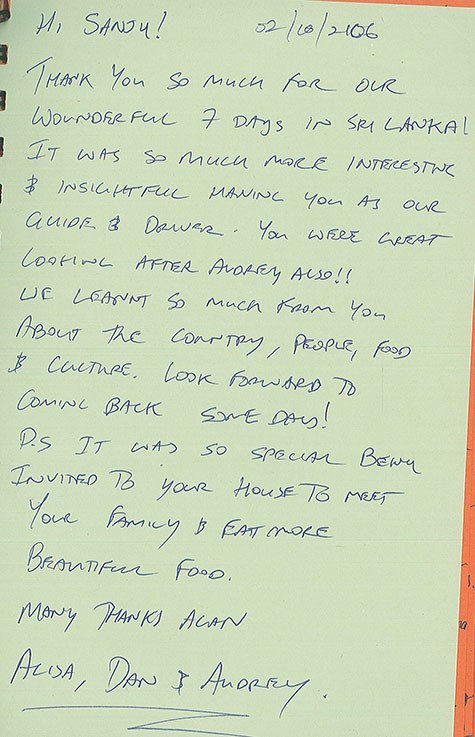 Hi SANJU! 02/10/2106
THANK YOU SO MUCH FOR OUR
WOUNDERFUL 7 DAYS IN SRI LANKA!
IT WAS SO MUCH MORE INTERESTING
& INSIGHTFUL HAVING YOU AS OUR
GUIDE & DRIVER. YOU WERE GREAT
LOOKING AFTER AUDREY ALSO!!
WE LEARNT SO MUCH FROM YOU
ABOUT THE COUNTRY, PEOPLE, FOOD
& CULTURE. LOOK FORWARD TO
COMING BACK SOME DAY!
P.S IT WAS SO SPECIAL BEING
INVITED TO YOUR HOUSE TO MEET
YOUR FAMILY & EAT MORE
BEAUTIFUL FOOD.
MANY THANKS AGAIN
ALISA, DAN & AUDREY.